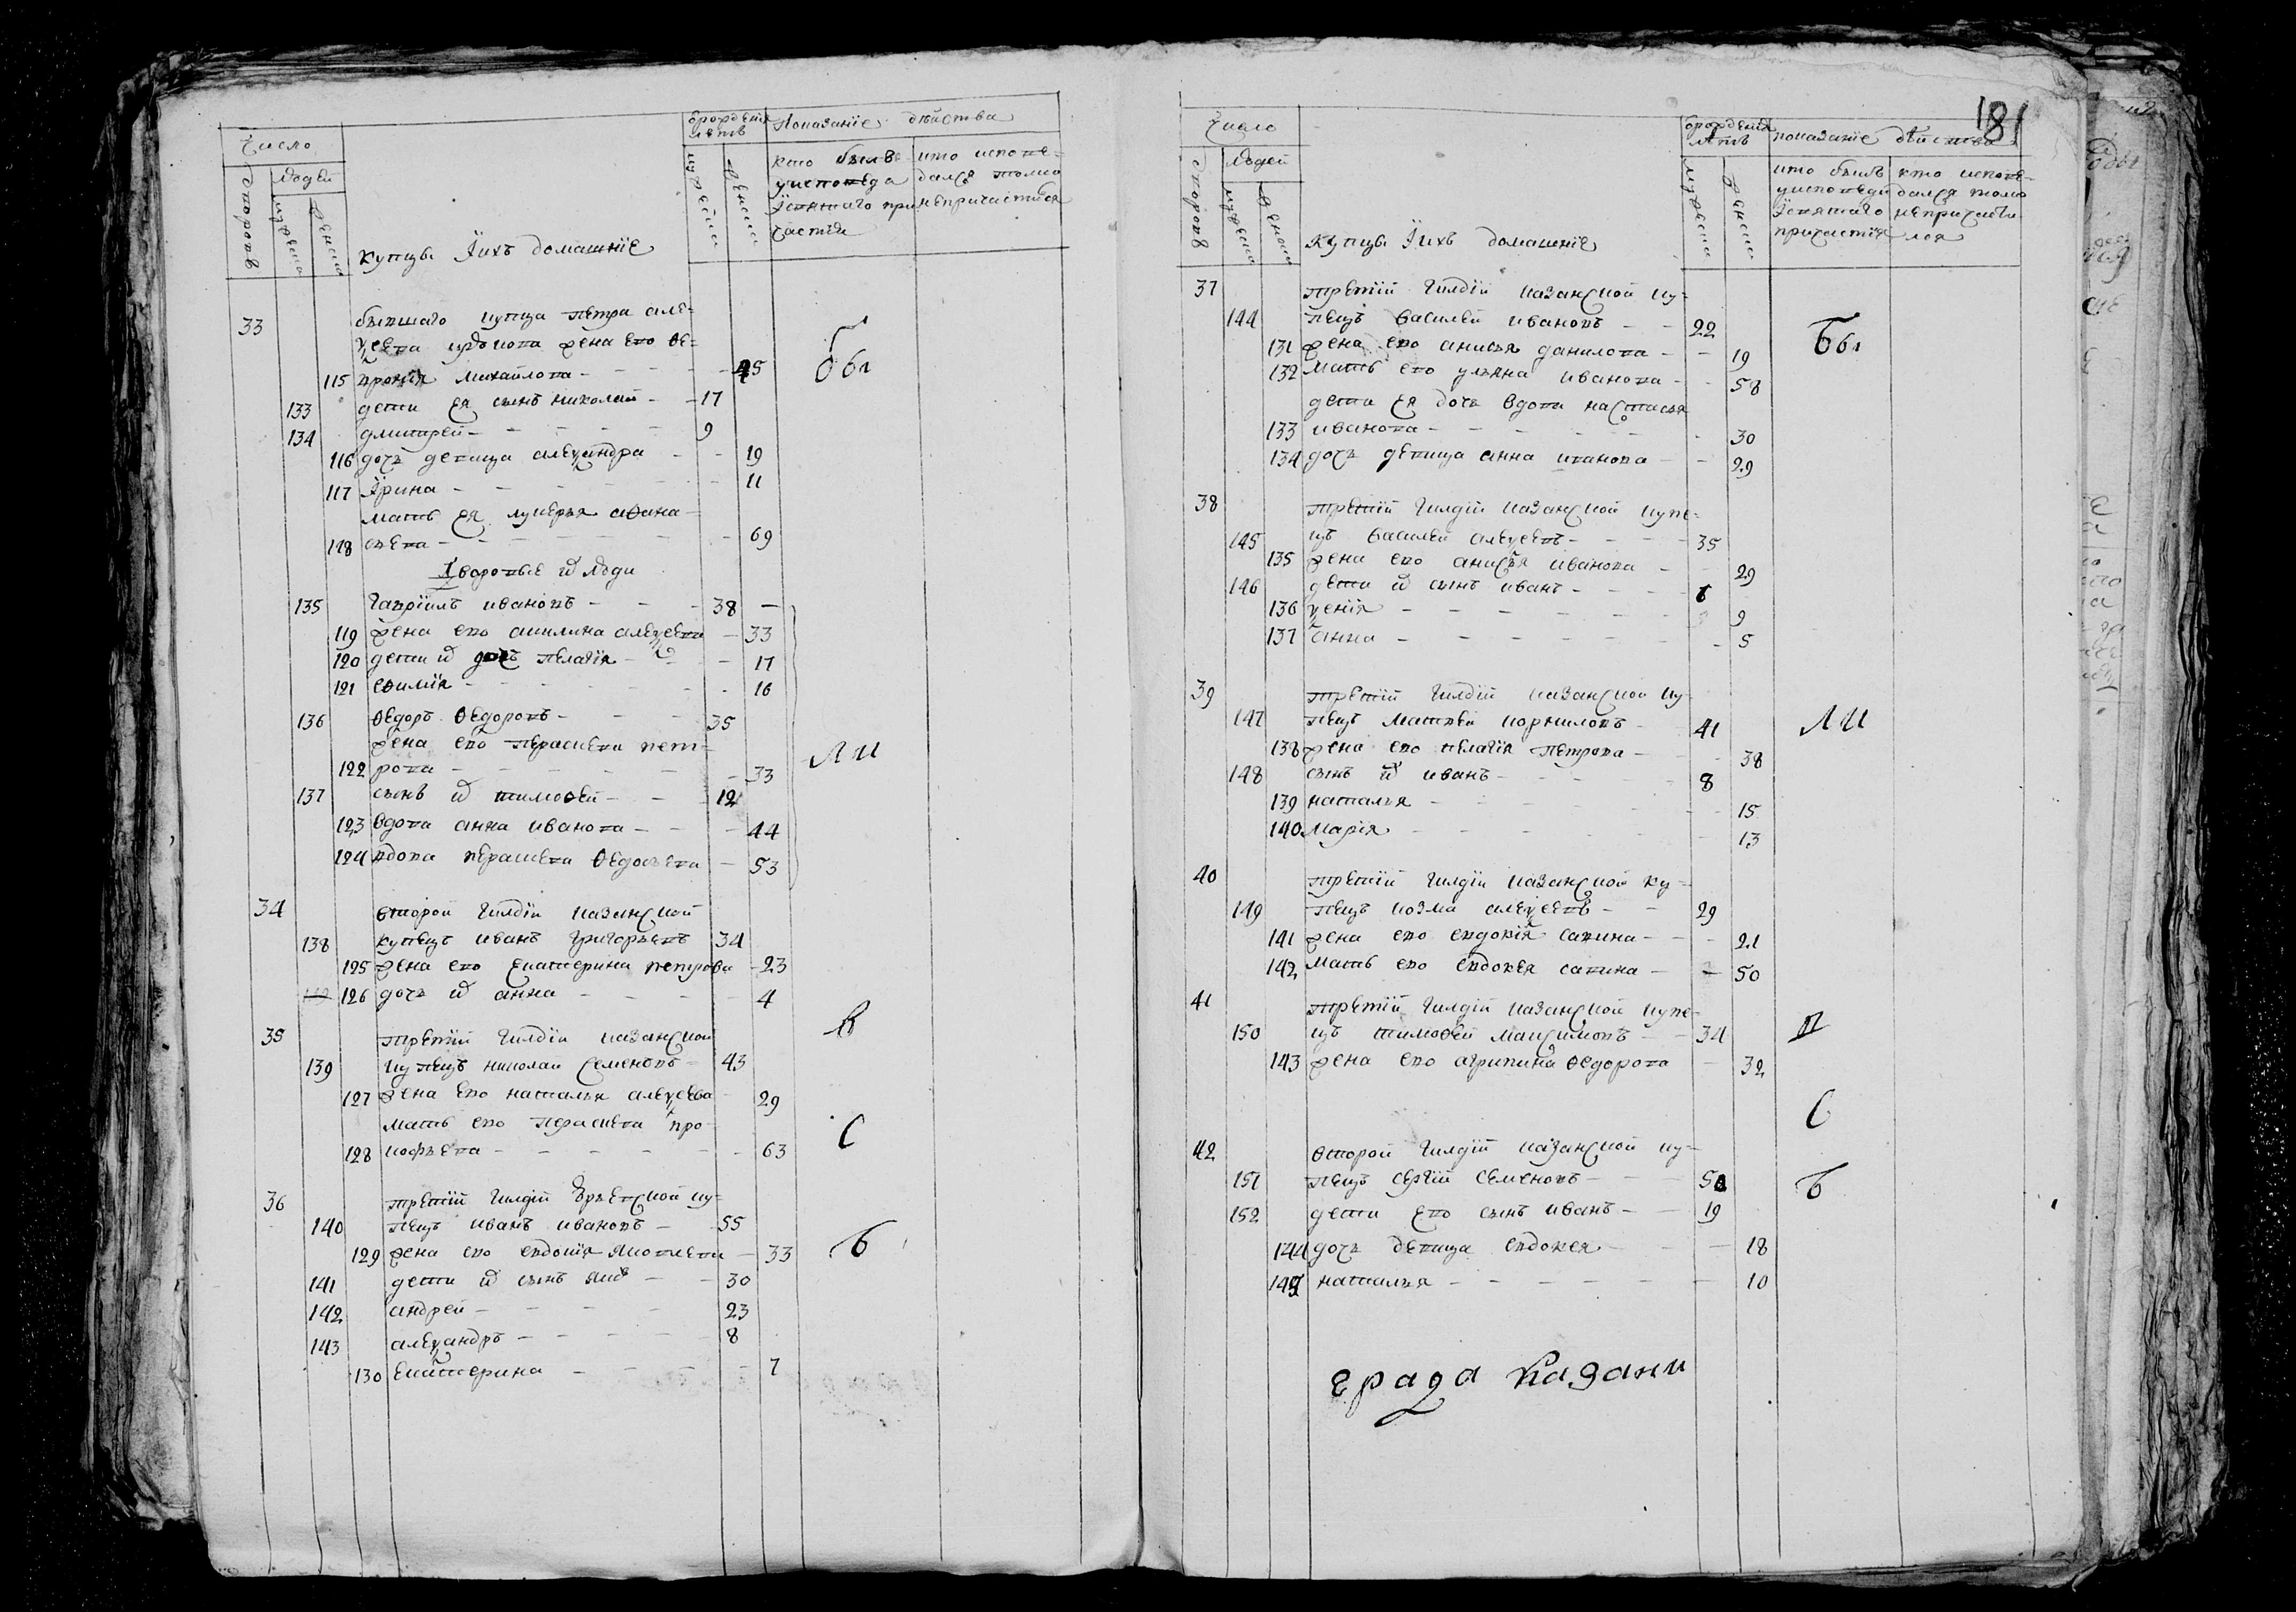 Число
Людей
дворовъ
мужеска
женска
Купцы їихъ домашнїе
брождения
летъ
мужеска
женска
Показанїе действа
кто былъ
уисповеда
їсвятаго при
частия
кто испове-
дался толко
непричастился
33 бывшаго купца петра але-
жена ево фе-
115 вронїя михайлова - 45
133 дети ея сынъ николай - 17
134 дмитрей - 9
116 дочь девица александра - 19
117 їрина - 11
мать ея лукерья афана-
118 сьева - 69
дворовые их люди
135 гаврїилъ ивановъ - 38
119 жена ево акилина алексеева - 33
120 дети их дочь пелагїя - 17
121 ефимїя - 16
136 федоръ федоровъ - 35
жена ево параскева пет-
122 рова - 33
137 сынъ их тимофей - 12
123 вдова анна иванова - 44
124 вдова параскева федосеева - 53
34 второй гилдїи казанской
138 купецъ иванъ григорьевъ 34
125 жена ево екатерина петрова - 23
126 дочь их анна - 4
35 третїй гилдїи казанской
139 купецъ николай семеновъ - 43
127 жена ево наталья алексеева - 29
мать ево параскева про-
128 кофьева - 63
36 третїй гилдїи ку-
140 пецъ иванъ ивановъ - 55
129 жена ево евдокїя яковлева - 33
141 дети их сынъ яковъ - 30
142 андрей - 23
143 александръ - 8
130 екатерина - 7
бы
ли
в
с
б
181
Число
Людей
дворовъ
мужеска
женска
Купцы їихъ домашнїе
брождения
летъ
мужеска
женска
показанїе действа
кто былъ
уисповеди
їсвятаго
причастия
кто испове-
дался толко
непричасти
лся
37 третїй гилдїи казанской ку-
144 пецъ василей ивановъ - 22
131 жена ево анисья данилова - 19
132 мать ево ульяна иванова - 58
дети ея дочь вдова настасья
133 иванова - 30
134 дочь девица анна иванова - 29
38 третїй гилдїи казанской купе-
145 цъ василей алексеевъ - 35
135 жена ево анисья иванова - 29
146 дети их сынъ иванъ - 6
136 ксенїя - 9
137 анна - 5
39 третїй гилдїи казанской ку-
147 пецъ матвей корниловъ - 41
138 жена ево пелагїя петрова - 38
148 сынъ их иванъ - 8
139 наталья - 15
140 марїя - 13
40 третїй гилдїи казанской ку-
149 пецъ козма алексеевъ - 29
141 жена ево евдокїя савина - 21
142 мать ево евдокея савина - 50
41 третїй гилдїи казанской купе-
150 цъ тимофей максимовъ - 34
143 жена ево агрипина федорова - 32
42 второй гилдїи казанской ку-
151 пецъ сергїй семеновъ - 50
152 дети ево сынъ иванъ - 19
144 дочь девица евдокея - 18
145 наталья - 10
бы
ли
в
с
б
града казани